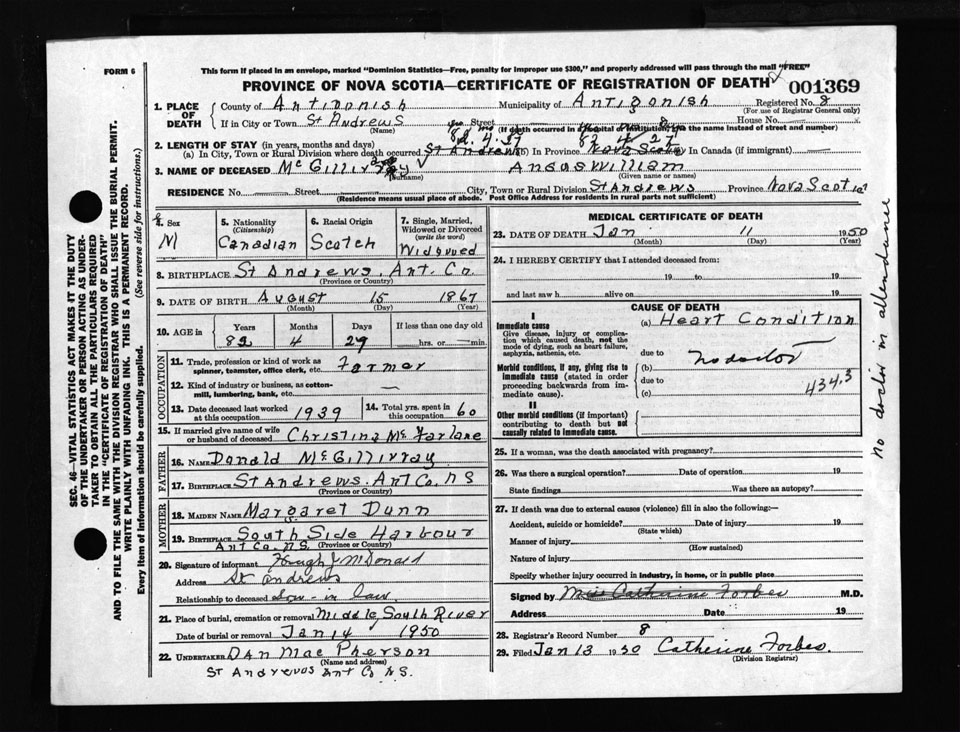 FORM 6
This form if placed in an envelope, marked "Dominion Statistics—Free, penalty for improper use $300," and properly addressed will pass through the mail "FREE"
PROVINCE OF NOVA SCOTIA—CERTIFICATE OF REGISTRATION OF DEATH 001369
1. PLACE OF DEATH
County of Antigonish Municipality of Antigonish Registered No. 8
(For use of Registrar General only)
If in City or Town St Andrews Street House No.
(Name) (If death occurred in a hospital or institution, give the name instead of street and number)
82 4 27 82 4 27
2. LENGTH OF STAY (in years, months and days)
(a) In City, Town or Rural Division where death occurred St Andrews (b) In Province Nova Scotia In Canada (if immigrant)
3. NAME OF DECEASED McGillivray Angus William
(Surname) (Given name or names)
RESIDENCE No. Street City, Town or Rural Division St Andrews Province Nova Scotia
(Residence means usual place of abode. Post Office Address for residents in rural parts not sufficient)
4. Sex M
5. Nationality (Citizenship) Canadian
6. Racial Origin Scotch
7. Single, Married, Widowed or Divorced (write the word) Widowed
8. BIRTHPLACE St Andrews, Ant. Co.
(Province or Country)
9. DATE OF BIRTH August 15 1867
(Month) (Day) (Year)
10. AGE in Years Months Days If less than one day old
82 4 29 hrs. or min.
OCCUPATION
11. Trade, profession or kind of work as spinner, teamster, office clerk, etc. Farmer
12. Kind of industry or business, as cotton-mill, lumbering, bank, etc. —
13. Date deceased last worked at this occupation 1939
14. Total yrs. spent in this occupation 60
15. If married give name of wife or husband of deceased Christina McFarlane
FATHER
16. NAME Donald McGillivray
17. BIRTHPLACE St Andrews. Ant Co. N S
(Province or Country)
MOTHER
18. MAIDEN NAME Margaret Dunn
19. BIRTHPLACE South Side Harbour
Ant Co. N.S. (Province or Country)
20. Signature of informant Hough J McDonald
Address St Andrews
Relationship to deceased Son-in law
21. Place of burial, cremation or removal Middle South River
Date of burial or removal Jan 14 1950
22. UNDERTAKER Dan MacPherson
(Name and address)
St Andrews Ant Co N.S.
MEDICAL CERTIFICATE OF DEATH
23. DATE OF DEATH Jan 11 1950
(Month) (Day) (Year)
24. I HEREBY CERTIFY that I attended deceased from:
19 to 19
and last saw h alive on 19
CAUSE OF DEATH
I
Immediate cause
Give disease, injury or complication which caused death, not the mode of dying, such as heart failure, asphyxia, asthenia, etc.
(a) Heart Condition
due to
no doctor
Morbid conditions, if any, giving rise to immediate cause (stated in order proceeding backwards from immediate cause).
(b)
due to
434.3
(c)
II
Other morbid conditions (if important) contributing to death but not causally related to immediate cause.
no doctor in attendance
25. If a woman, was the death associated with pregnancy?
26. Was there a surgical operation? Date of operation 19
State findings Was there an autopsy?
27. If death was due to external causes (violence) fill in also the following:—
Accident, suicide or homicide? Date of injury 19
(State which)
Manner of injury
(How sustained)
Nature of injury
Specify whether injury occurred in industry, in home, or in public place
Signed by Miss Catherine Forbes M.D.
Address Date 19
28. Registrar's Record Number 8
29. Filed Jan 13 1950 Catherine Forbes
(Division Registrar)
SEC. 46—VITAL STATISTICS ACT MAKES IT THE DUTY
OF THE UNDERTAKER OR PERSON ACTING AS UNDER-
TAKER TO OBTAIN ALL THE PARTICULARS REQUIRED
IN THE "CERTIFICATE OF REGISTRATION OF DEATH"
AND TO FILE THE SAME WITH THE DIVISION REGISTRAR WHO SHALL ISSUE THE BURIAL PERMIT.
WRITE PLAINLY WITH UNFADING INK. THIS IS A PERMANENT RECORD.
Every item of information should be carefully supplied. (See reverse side for instructions.)